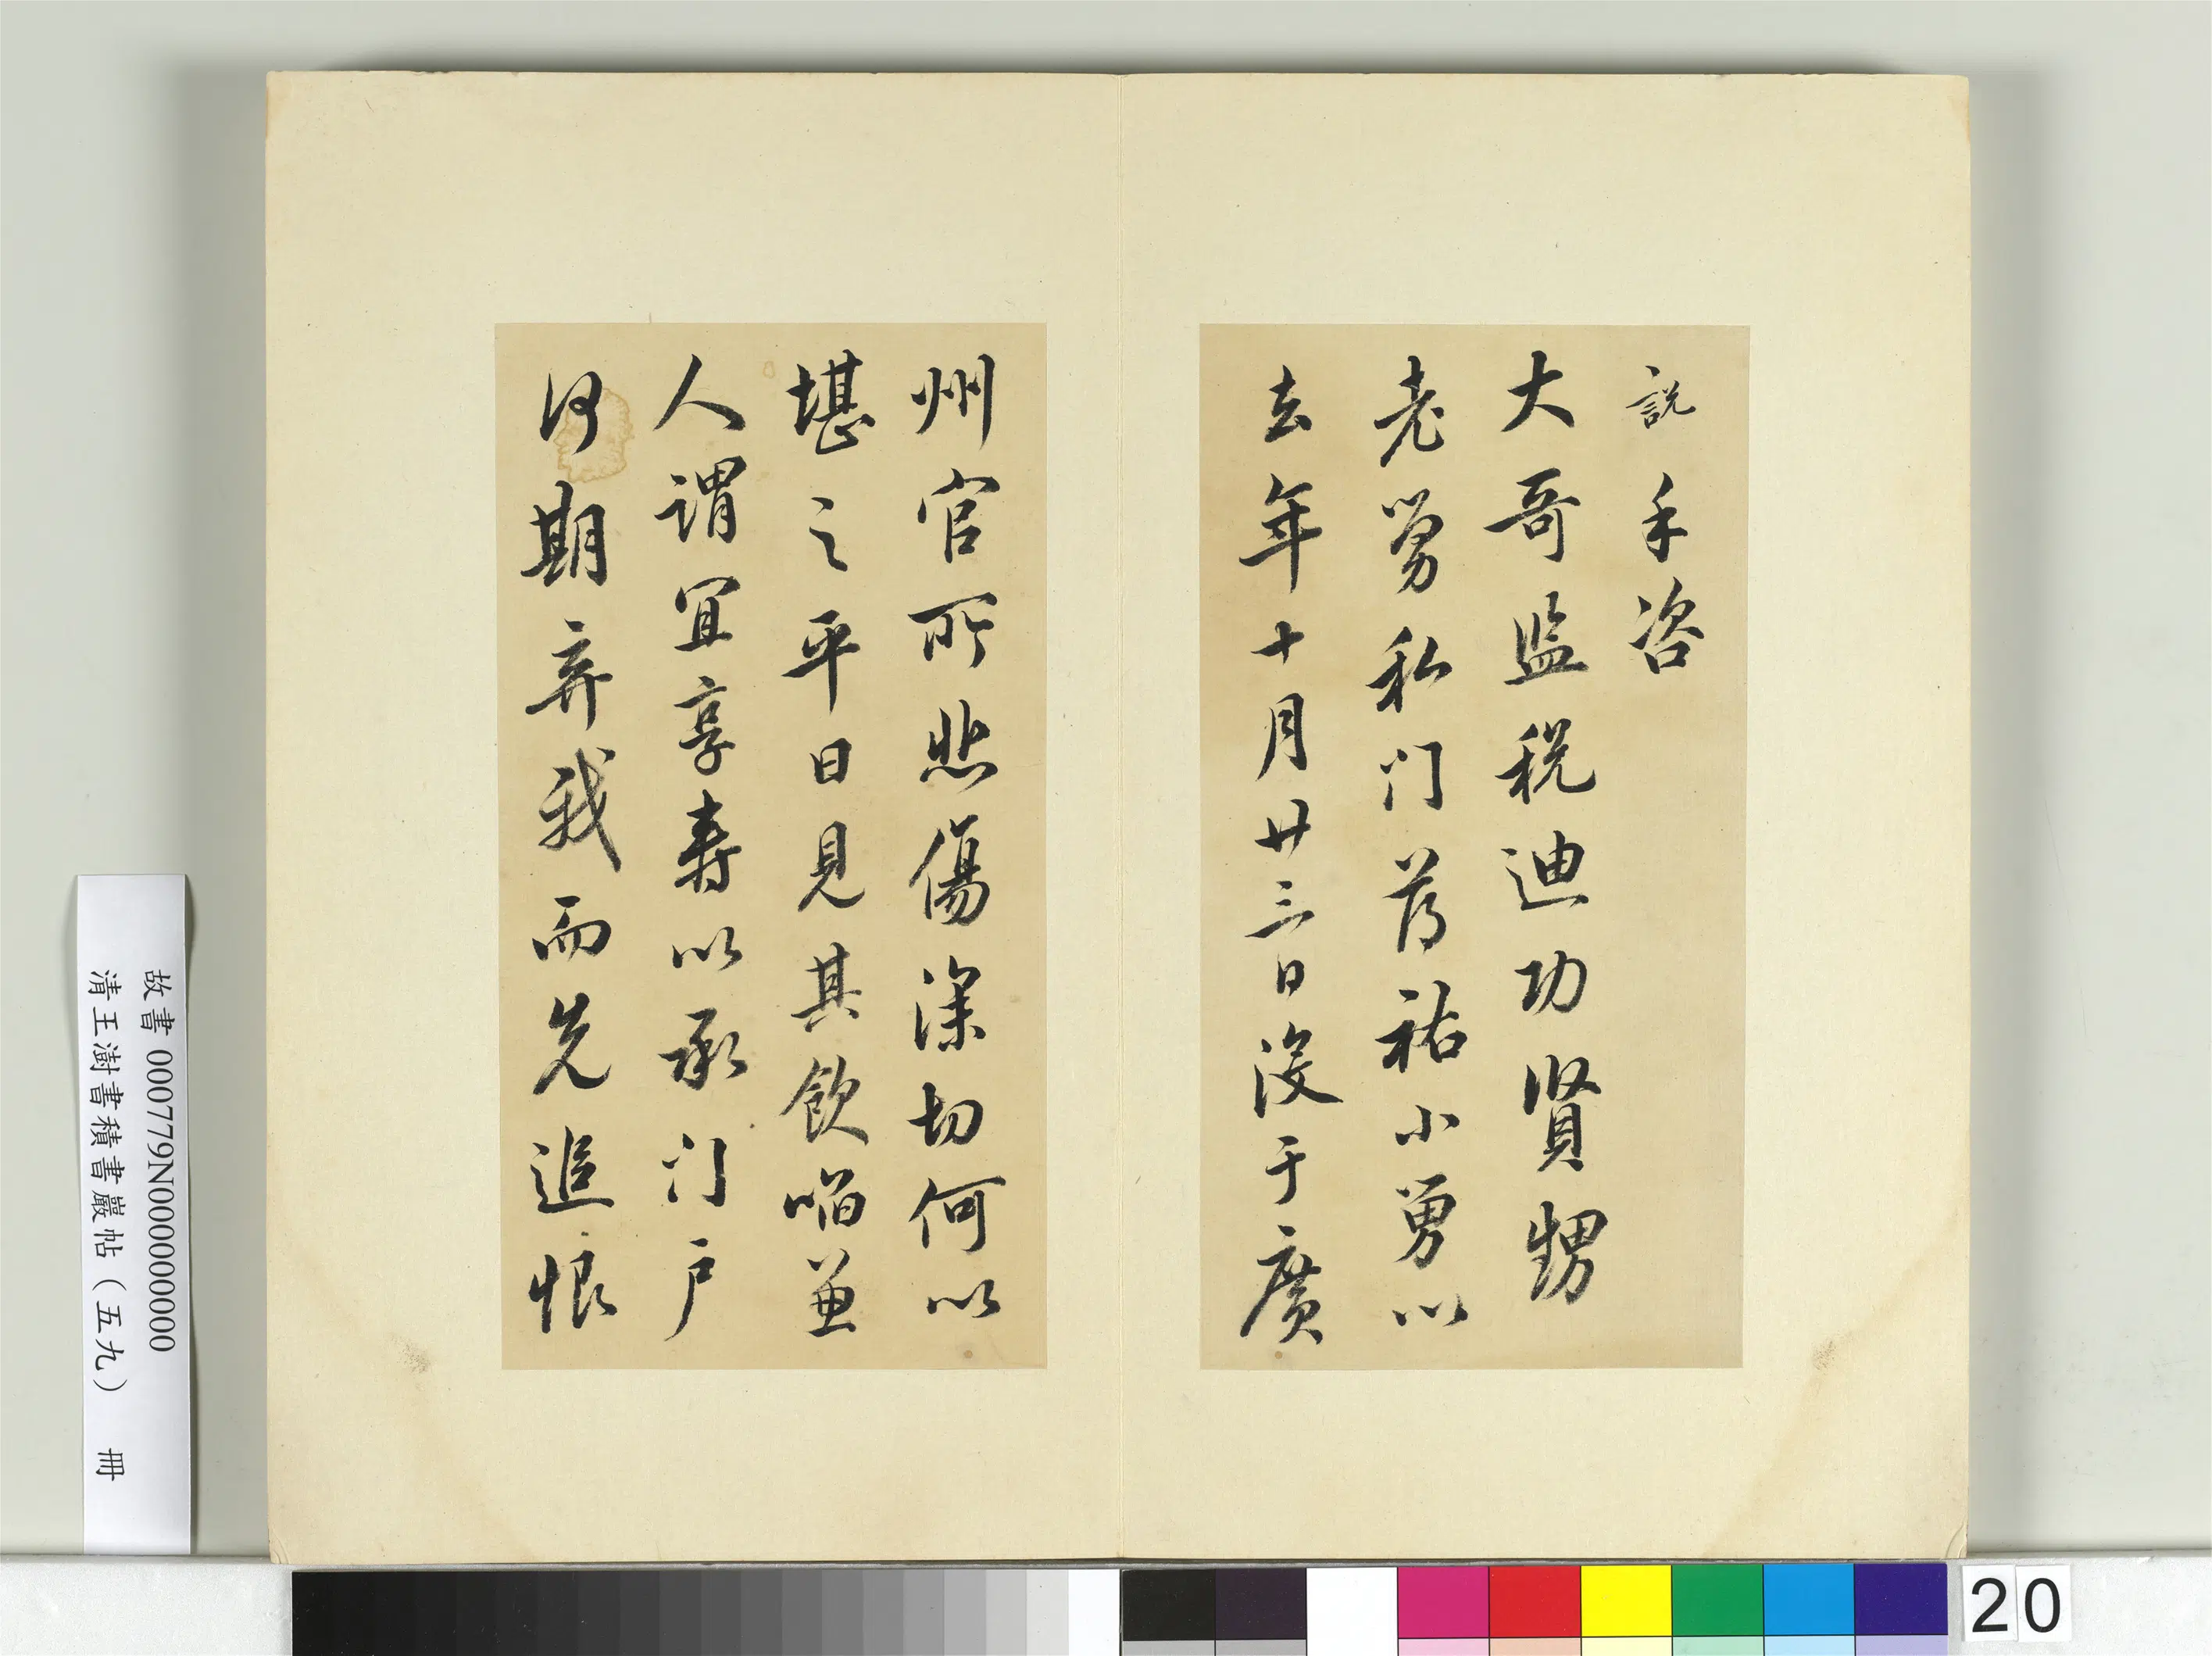 説手咨
大哥监税迪功贤甥
老舅私门荐祐小舅以
去年十月廿三日没于廣
州官所悲傷深切何以
堪之平日見其飲啗兼
人謂宜享寿以承门户
何期弃我而先追恨
故書 000779N000000000
清王澍書積書巖帖（五九） 冊
20